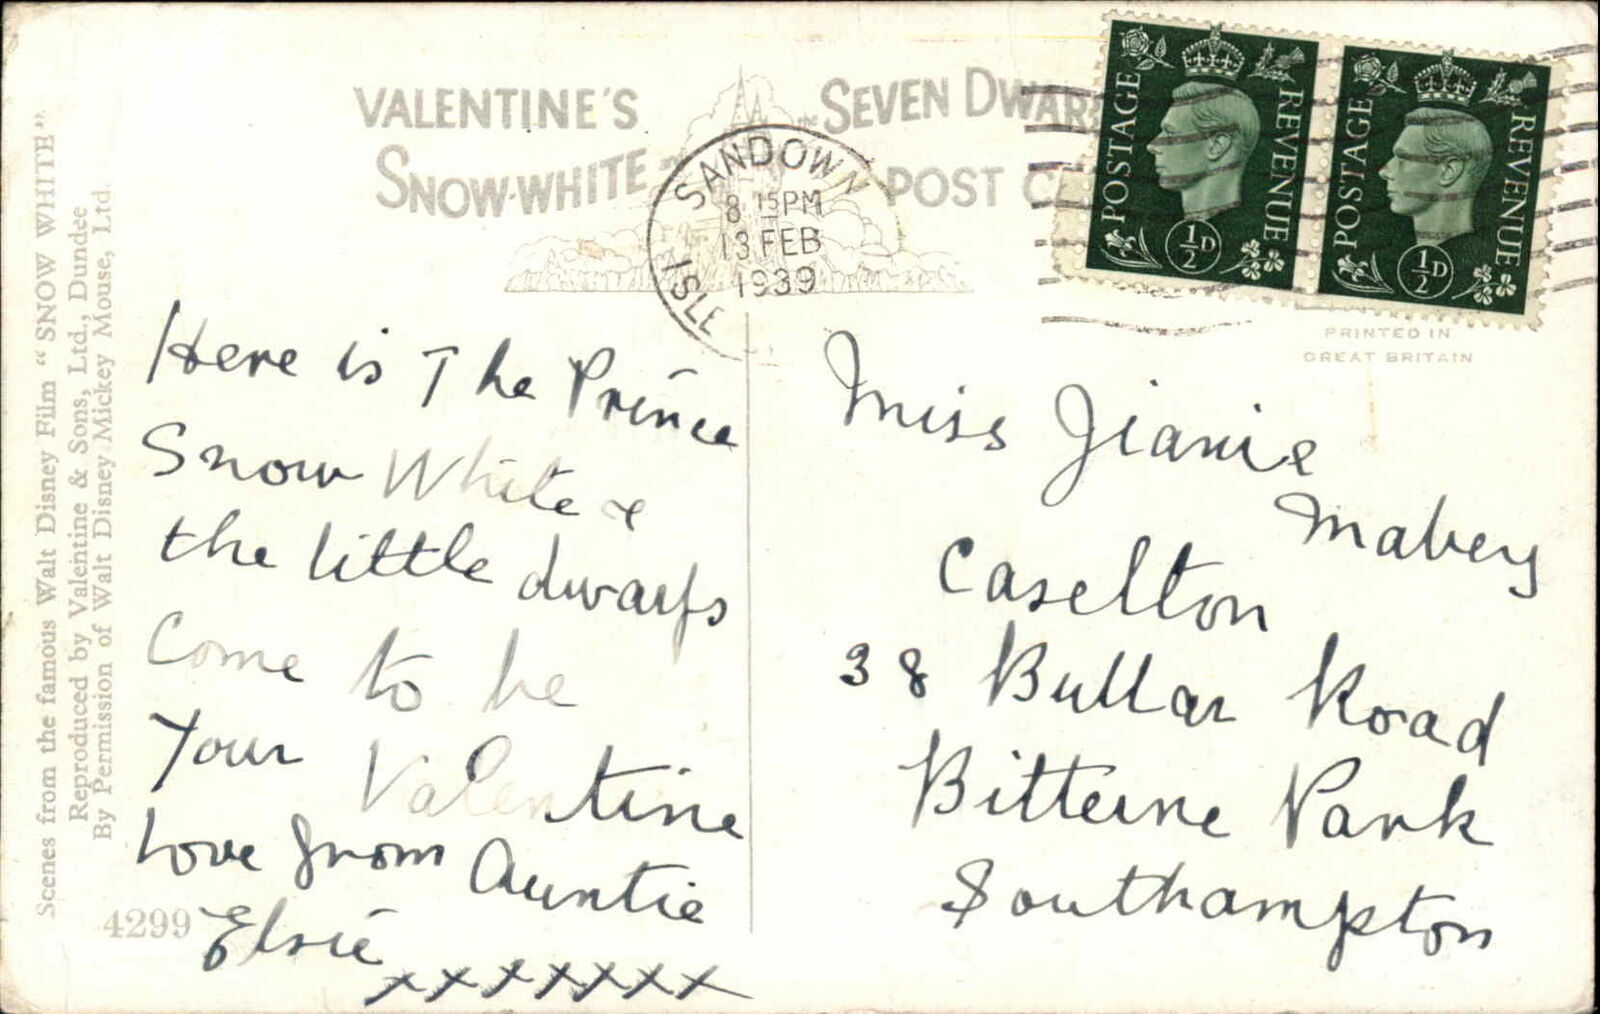 Scenes from the famous Walt Disney Film "SNOW WHITE"
Reproduced by Valentine & Sons, Ltd., Dundee
By Permission of Walt Disney-Mickey Mouse, Ltd.
VALENTINE'S
SNOW-WHITE
the SEVEN DWAR
POST C
SANDOWN
8 15PM
13 FEB
1939
ISLE
POSTAGE
REVENUE
½D
POSTAGE
REVENUE
½D
PRINTED IN
GREAT BRITAIN
Here is The Prince
Snow White &
the little dwarfs
Come to be
Your Valentine
Love from Auntie
Elsie
xxxxxxx
4299
Miss Jianie
Mabery
Caselton
38 Bullar Road
Bitterne Park
Southampton